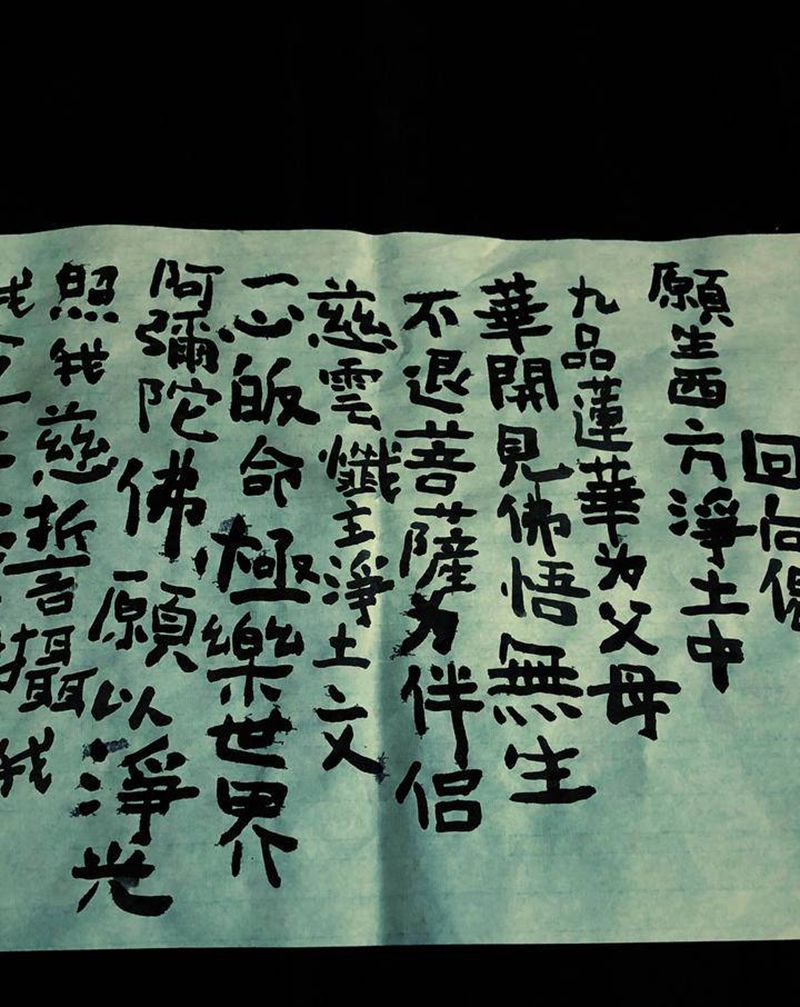 回向偈
願生西方淨土中
九品蓮華为父母
華開見佛悟無生
不退菩薩为伴侣
慈雲懺主淨土文
一心皈命極樂世界
阿彌陀佛願以淨光
照我慈誓攝我
我今